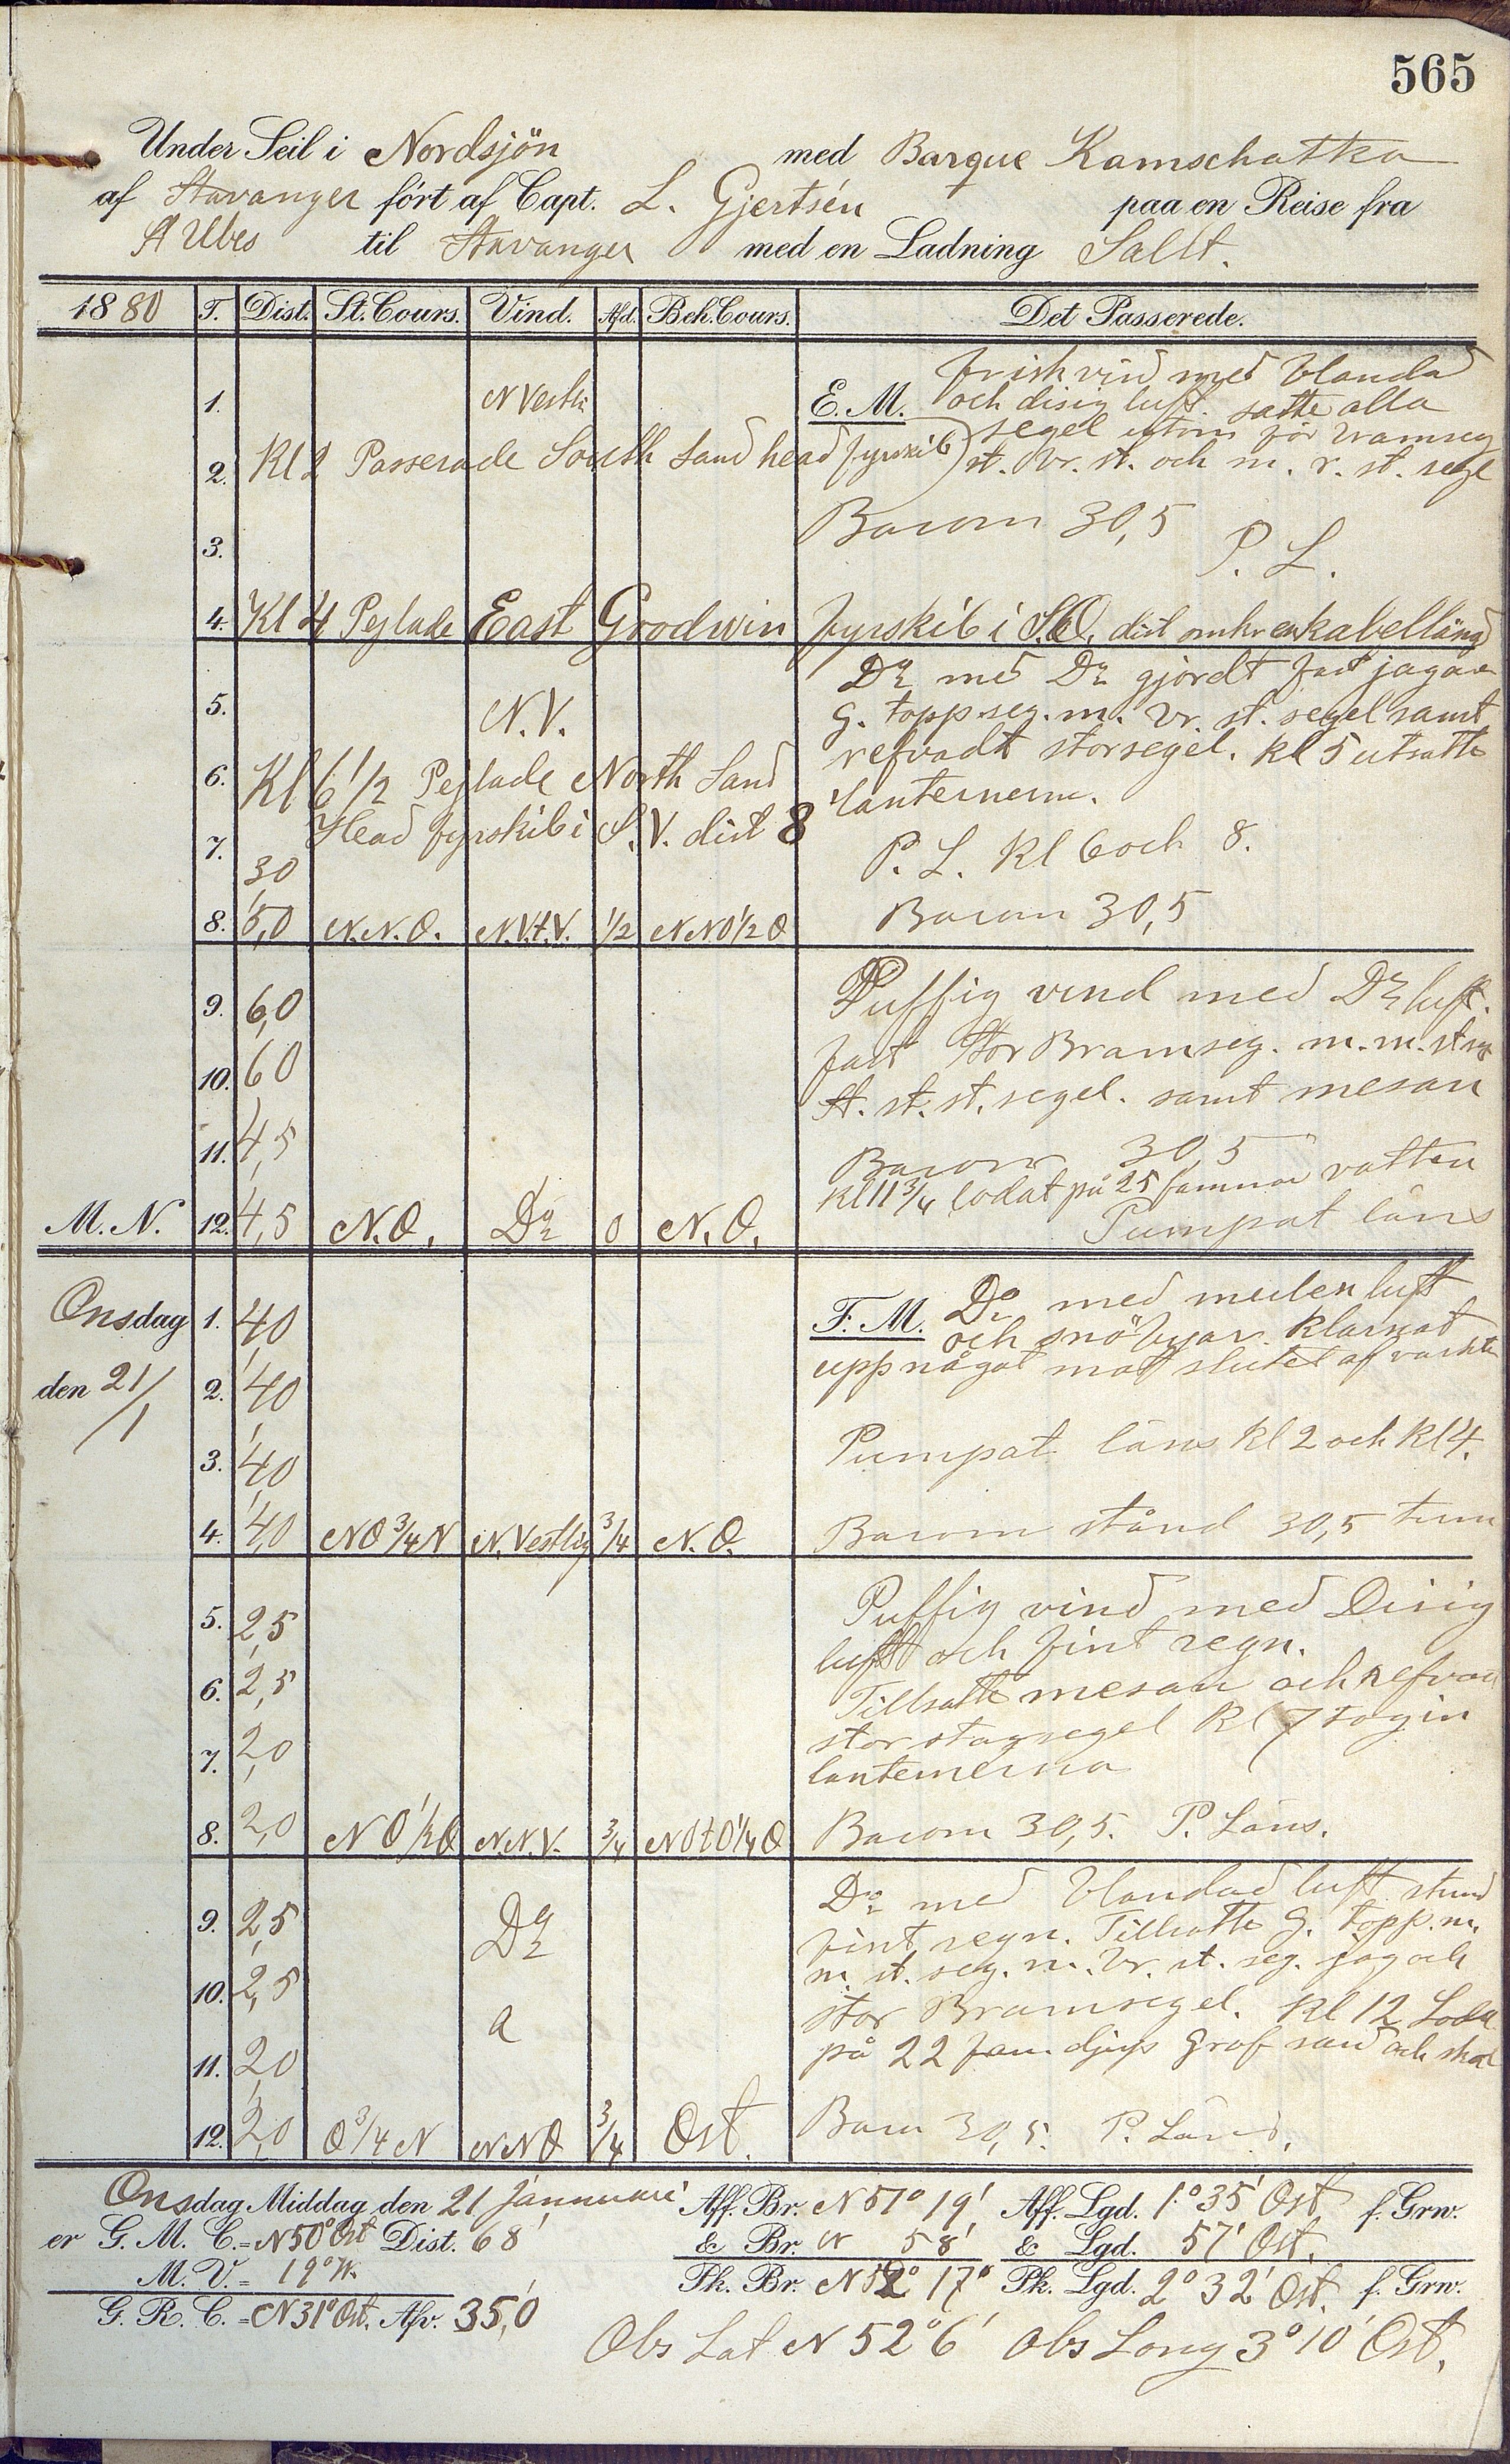 565
Under Seil i Nordsjön med Barque Kamschatka
af Stavanger fört af Capt. L. Gjertsén paa en Reise fra
St Ubes til Stavanger med en Ladning Salt.
1880 T. Dist. St. Cours. Vind. Afd. Beh. Cours. Det Passerede.
frisk vind med blandad
1. N Vestli E. M. och disig luft. satte alla
segel utom för bramseg
2. Kl 2 Passerade South Sand head fyrskib st. br. st. och m. r. st. segl
Barom 30,5
3. P. L.
4. Kl 4 Pejlade East Grodwin fyrskib i S.O. dist omkr en kabellängd
Do med Do gjordt fast jagare
5. N.V. G. topp. seg. m. br. st. segel samt
refvadt storsegel. kl 5 utsatte
6. Kl 6 1/2 Pejlade North Sand lanternerna.
7. Head fyrskib i S.V. dist 8 P. L. Kl 6 och 8.
30
8. 5,0 N.N.O. N.V.t.V. 1/2 N N O 1/2 O Barom 30,5
9. 6,0 Puffig vind med Do luft.
10. 60 fast Stor Bramseg. m. m. st sg
St. st. st. segel. samt mesan
11. 4,5 Barom 30,5
Kl 11 3/4 lodat på 25 famnar vatten
M. N. 12. 4,5 N.O. Do 0 N.O. Pumpat läns
Onsdag 1. 4,0 F. M. Do med mulen luft
och snö byar. klarnat
den 21/1 2. 4,0 upp något mot slutet af vackten
3. 4,0 Pumpat läns kl 2 och kl 4.
4. 4,0 N O 3/4 N N. Vestlig 3/4 N. O. Barom stånd 30,5 tum
5. 2,5 Puffig vind med Disig
luft och fint regn.
6. 2,5 Tillsatte mesan och refvad
7. 2,0 stor stagsegel Kl 7 tog in
lanternerna
8. 2,0 N O 1/2 O N.N.V. 3/4 N O t O 1/4 O Barom 30,5. P. Läns.
9. 2,5 Do Do med blandad luft stund
fint regn. Tillsatte G. topp. m.
10. 2,5 a m. st. seg. m. br. st. seg. jag och
stor Bramsegel. Kl 12 Loda
11. 2,0 på 22 fam djup Grof sand och skal
12. 2,0 O 3/4 N N N O 3/4 Ost. Barn 30,5. P. Läns.
Onsdag Middag den 21 Januari Aff. Br. N 51° 19' Aff. Lgd. 1° 35' Ost f. Grw.
er G. M. C. = N 50° Ost Dist. 68' & Br. N 58' & Lgd. 57' Ost.
M. V. = 19° W. Pk. Br. N 52° 17° Pk. Lgd. 2° 32' Ost. f. Grw.
G. R. C. = N 31° Ost. Afv. 35,0'
Obs Lat N 52° 6' Obs Long 3° 10' Ost.